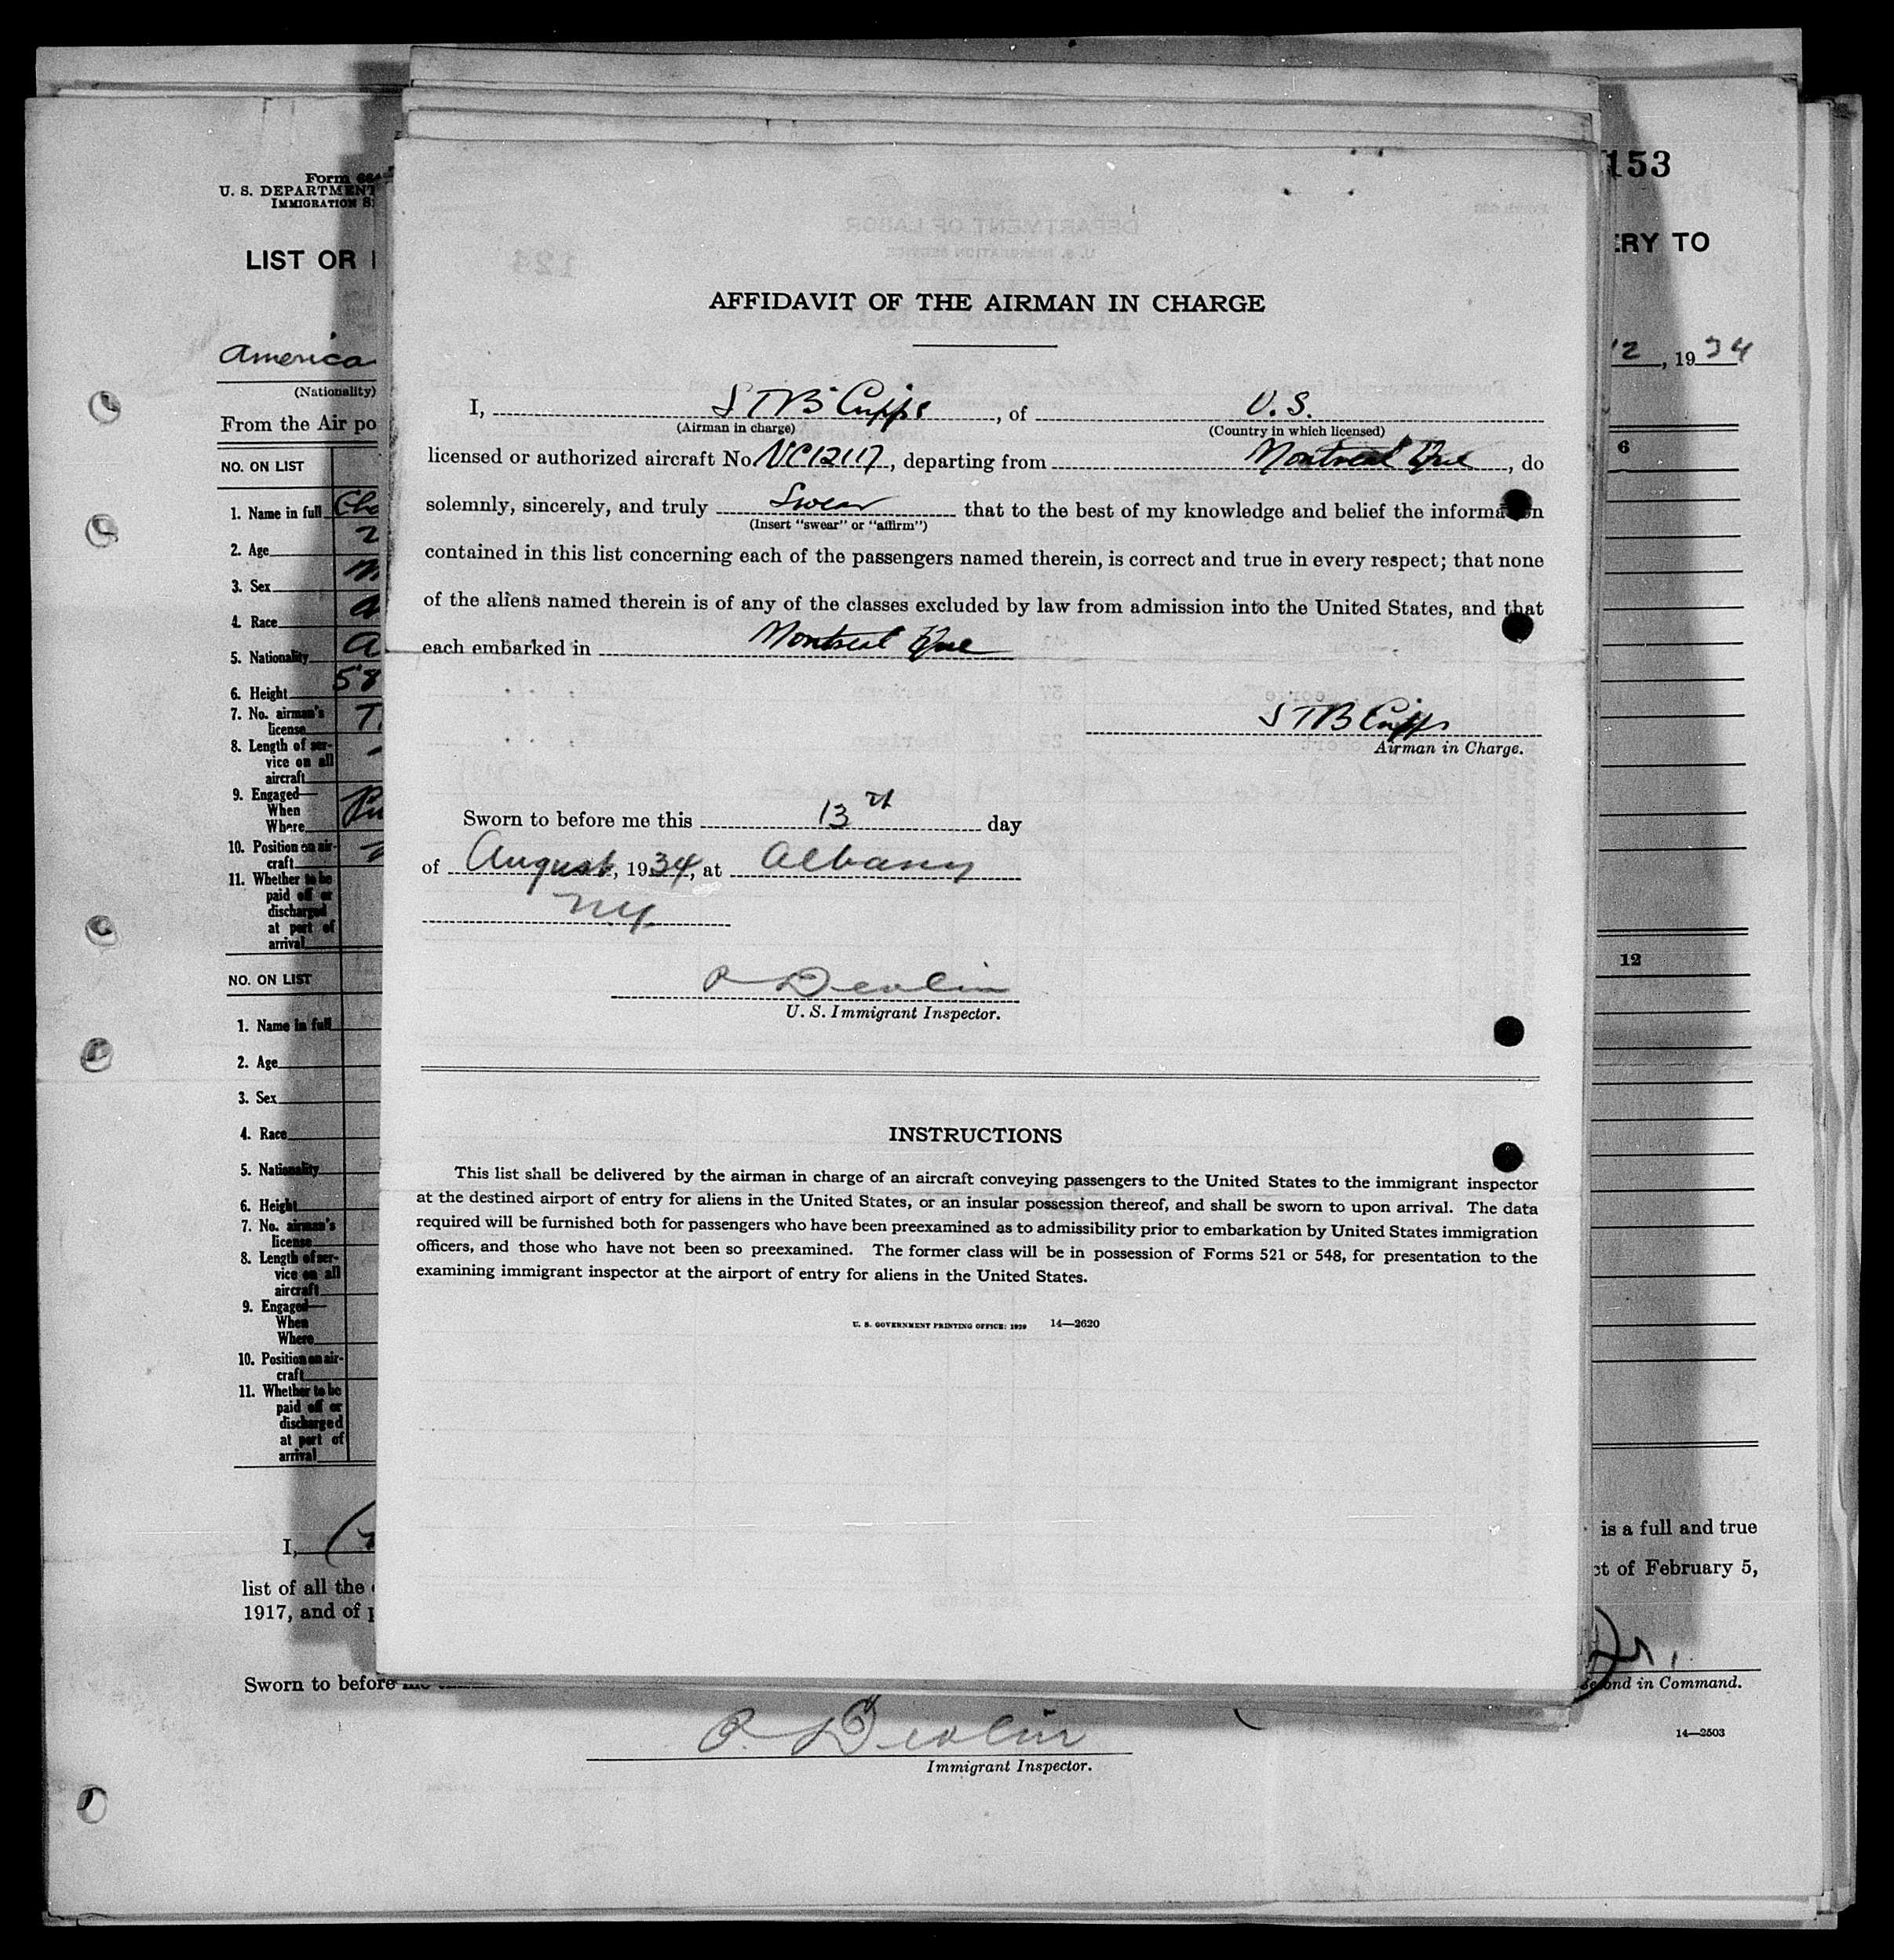 Form
U. S. DEPARTMENT
IMMIGRATION
LIST OR
America
(Nationality)
From the Air po
NO. ON LIST
1. Name in full
2. Age
3. Sex
4. Race
5. Nationality
6. Height 58
7. No. airman's
license
8. Length of ser-
vice on all
aircraft
9. Engaged—
When
Where
10. Position on air-
craft
11. Whether to be
paid off or
discharged
at port of
arrival
NO. ON LIST
1. Name in full
2. Age
3. Sex
4. Race
5. Nationality
6. Height
7. No. airman's
license
8. Length of ser-
vice on all
aircraft
9. Engaged—
When
Where
10. Position on air-
craft
11. Whether to be
paid off or
discharged
at port of
arrival
I,
list of all the
1917, and of
Sworn to before me
AFFIDAVIT OF THE AIRMAN IN CHARGE
I, S T B Cripps, of U. S.
(Airman in charge) (Country in which licensed)
licensed or authorized aircraft No. NC12117, departing from Montreal Que, do
solemnly, sincerely, and truly Swear that to the best of my knowledge and belief the information
(Insert "swear" or "affirm")
contained in this list concerning each of the passengers named therein, is correct and true in every respect; that none
of the aliens named therein is of any of the classes excluded by law from admission into the United States, and that
each embarked in Montreal Que
S T B Cripps
Airman in Charge.
Sworn to before me this 13th day
of August, 1934, at Albany
NY.
P Devlin
U. S. Immigrant Inspector.
INSTRUCTIONS
This list shall be delivered by the airman in charge of an aircraft conveying passengers to the United States to the immigrant inspector
at the destined airport of entry for aliens in the United States, or an insular possession thereof, and shall be sworn to upon arrival. The data
required will be furnished both for passengers who have been preexamined as to admissibility prior to embarkation by United States immigration
officers, and those who have not been so preexamined. The former class will be in possession of Forms 521 or 548, for presentation to the
examining immigrant inspector at the airport of entry for aliens in the United States.
U. S. GOVERNMENT PRINTING OFFICE: 1929 14—2620
153
ERY TO
12, 1934
6
12
is a full and true
ct of February 5,
Second in Command.
14—2503
P. Devlin
Immigrant Inspector.